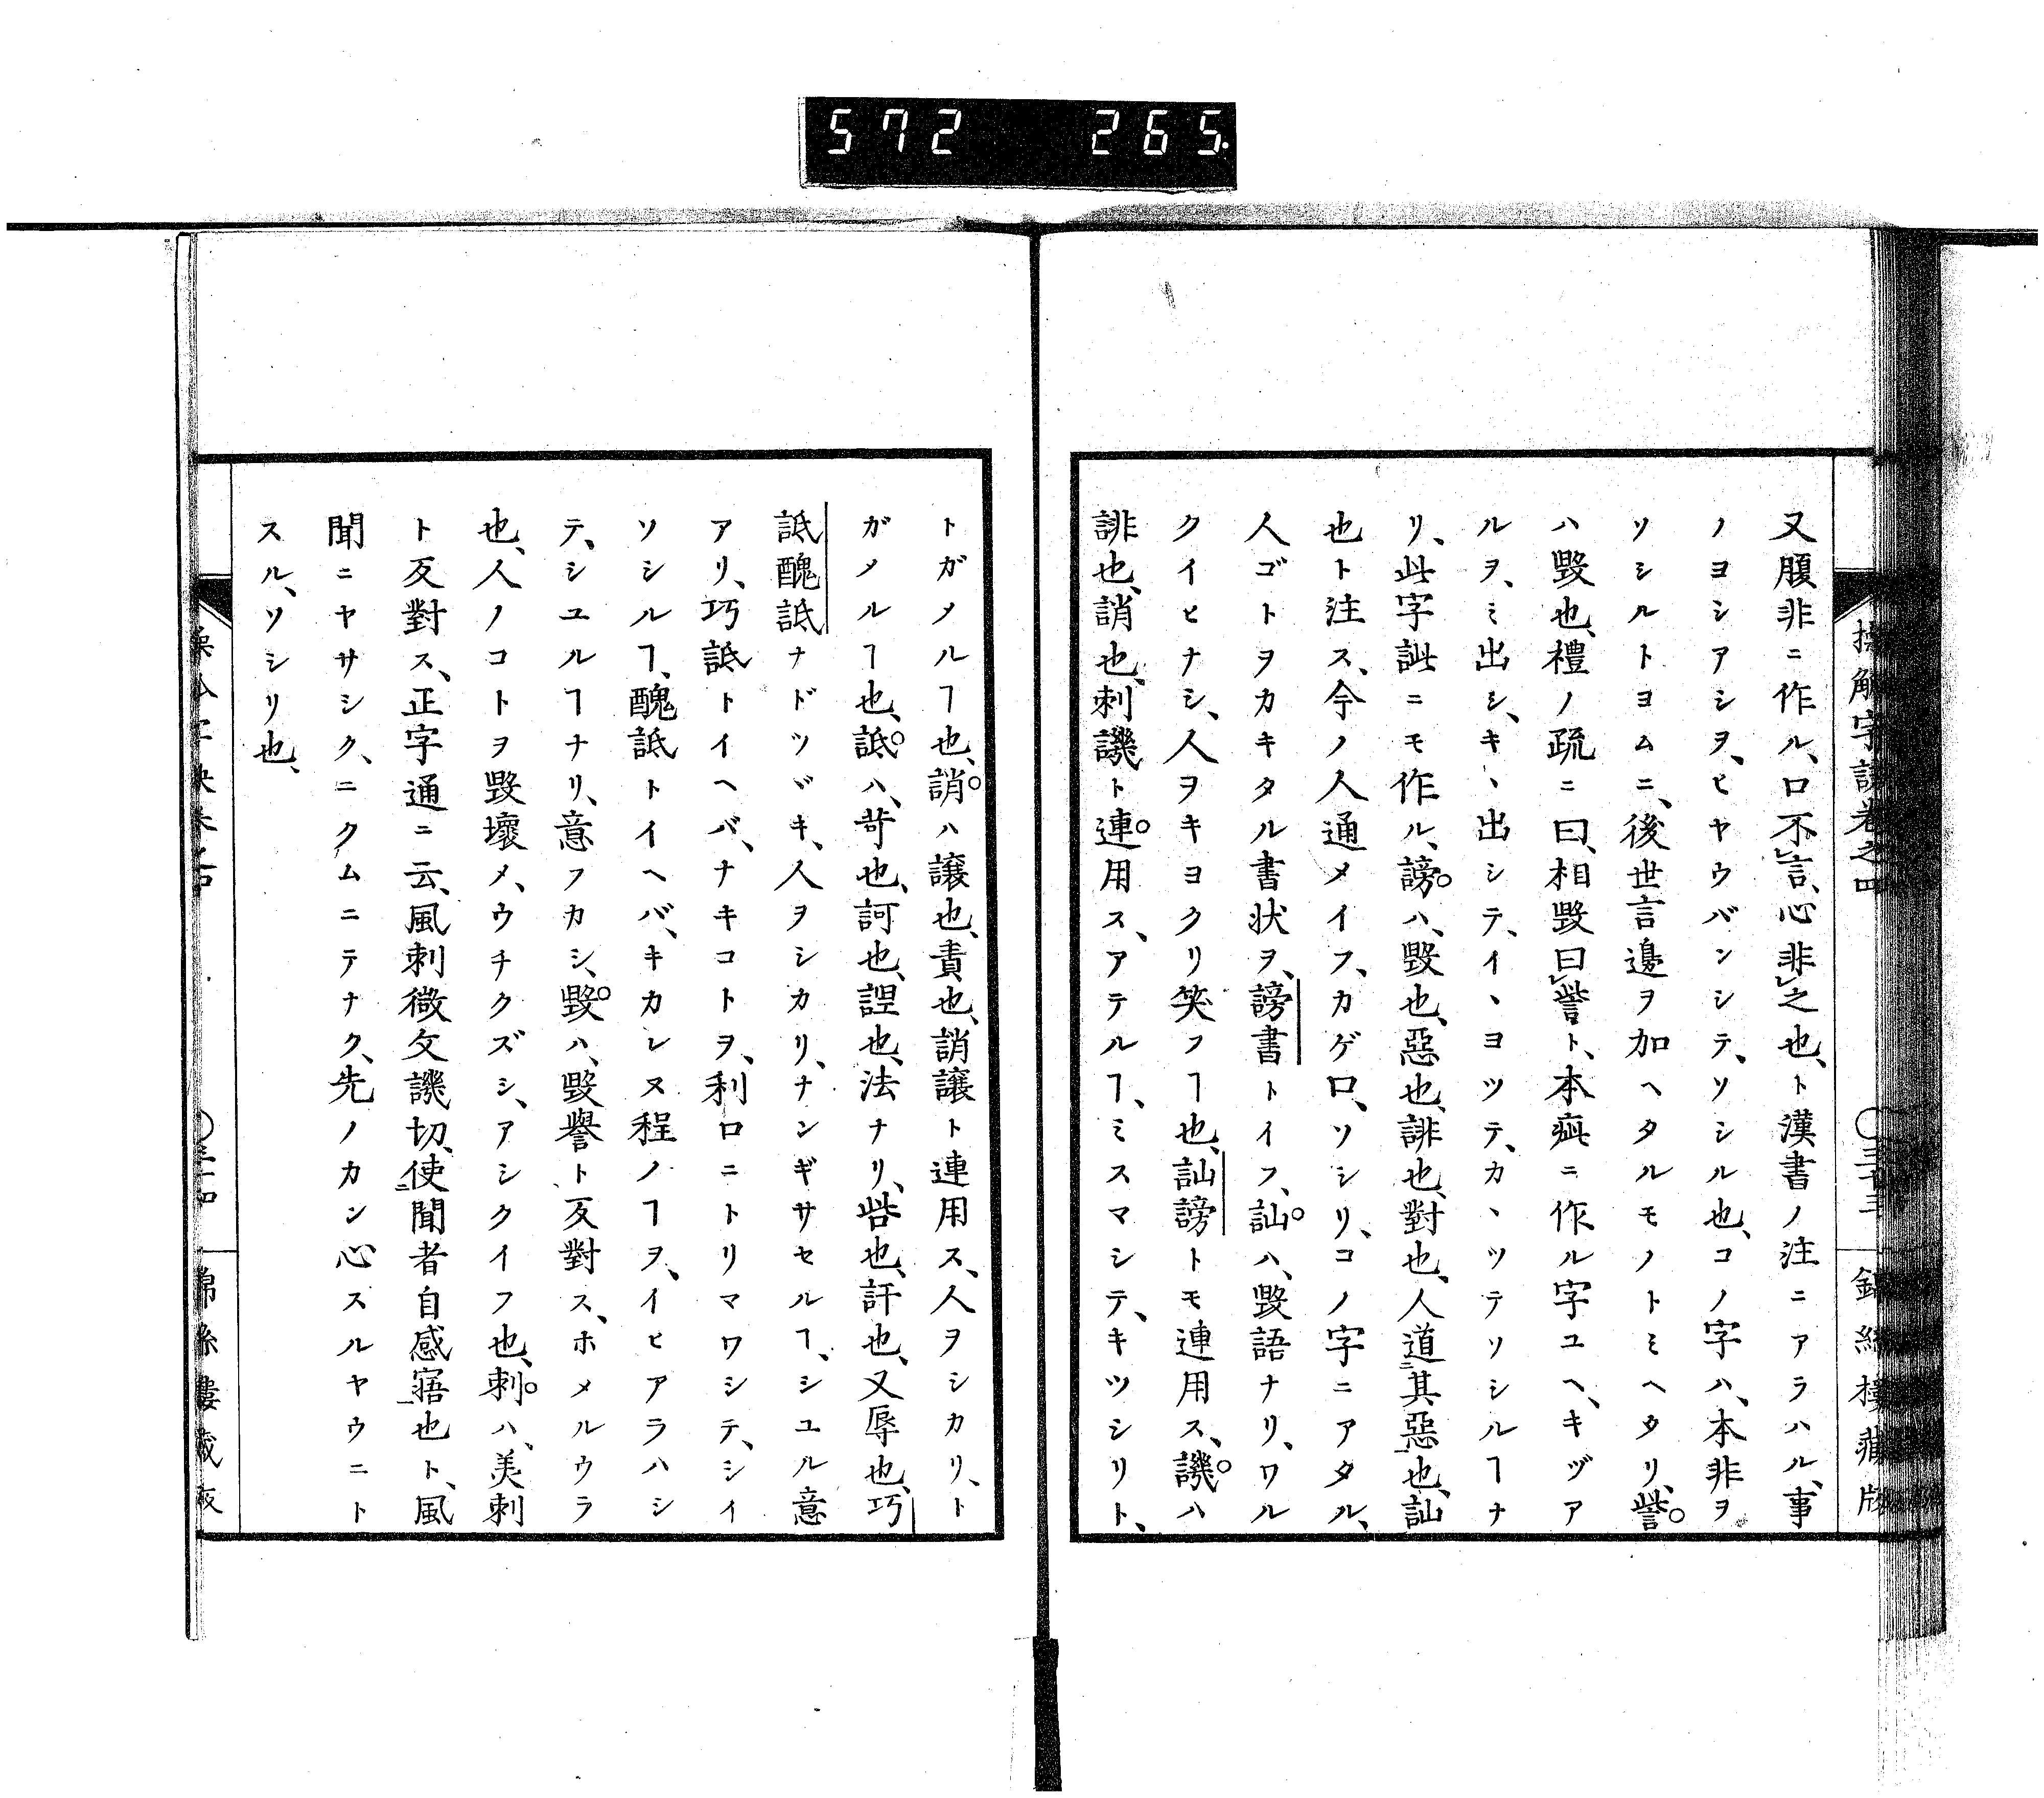 572 265.
又腹非ニ作ル、口不言、心非之也、ト漢書ノ注ニアラハル、事
ノヨシアシヲ、ヒヤウバンシテ、ソシル也、コノ字ハ、本非ヲ
ソシルトヨムニ、後世言邊ヲ加ヘタルモノトミヘタリ、訾
ハ毀也、禮ノ疏ニ曰、相毀曰訾ト、本疵ニ作ル字ユヘ、キヅア
ルヲ、ミ出シ、キヽ出シテ、イヽヨツテ、カヽツテソシルヿナ
リ、此字訿ニモ作ル、謗ハ、毀也、惡也、誹也、對也、人道其惡也、訕
也ト注ス、今ノ人通メイフ、カゲ口、ソシリ、コノ字ニアタル、
人ゴトヲカキタル書状ヲ、謗書トイフ、訕ハ、毀語ナリ、ワル
クイヒナシ、人ヲキヨクリ笑フヿ也、訕謗トモ連用ス、譏ハ
誹也、誚也、刺譏ト連用ス、アテルヿ、ミスマシテ、キツシリト、
トガメルヿ也、誚ハ譲也、責也、誚譲ト連用ス、人ヲシカリ、ト
ガメルヿ也、詆ハ、苛也、訶也、誣也、法ナリ、呰也、訐也、又辱也、巧
詆醜詆ナドツヾキ、人ヲシカリ、ナンギサセルヿ、シユル意
アリ、巧詆トイヘバ、ナキコトヲ、利口ニトリマワシテ、シイ
ソシルヿ、醜詆トイヘバ、キカレヌ程ノヿヲ、イヒアラハシ
テ、シユルヿナリ、意フカシ、毀ハ、毀譽ト反對ス、ホメルウラ
也、人ノコトヲ毀壞メ、ウチクズシ、アシクイフ也、刺ハ、美刺
ト反對ス、正字通ニ云、風刺微文譏切、使聞者自感寤也ト、風
聞ニヤサシク、ニクムニテナク、先ノカン心スルヤウニト
スル、ソシリ也、